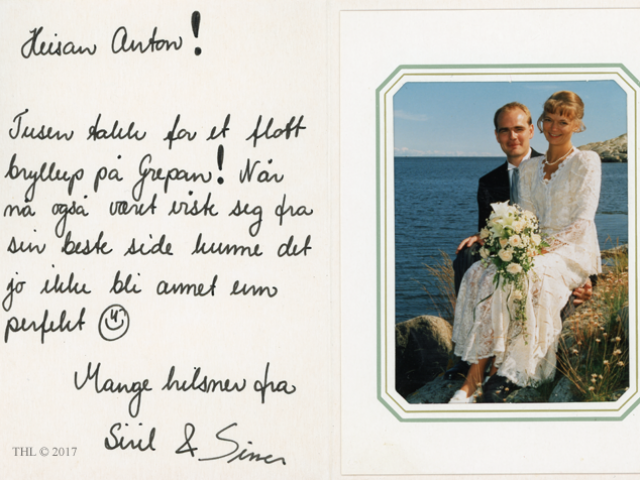 Heisan Anton!
Tusen takk for et flott
bryllup på Grepan! Når
nå også været viste seg fra
sin beste side kunne det
jo ikke bli annet enn
perfekt
Mange hilsner fra
Siril & Simen
THL © 2017